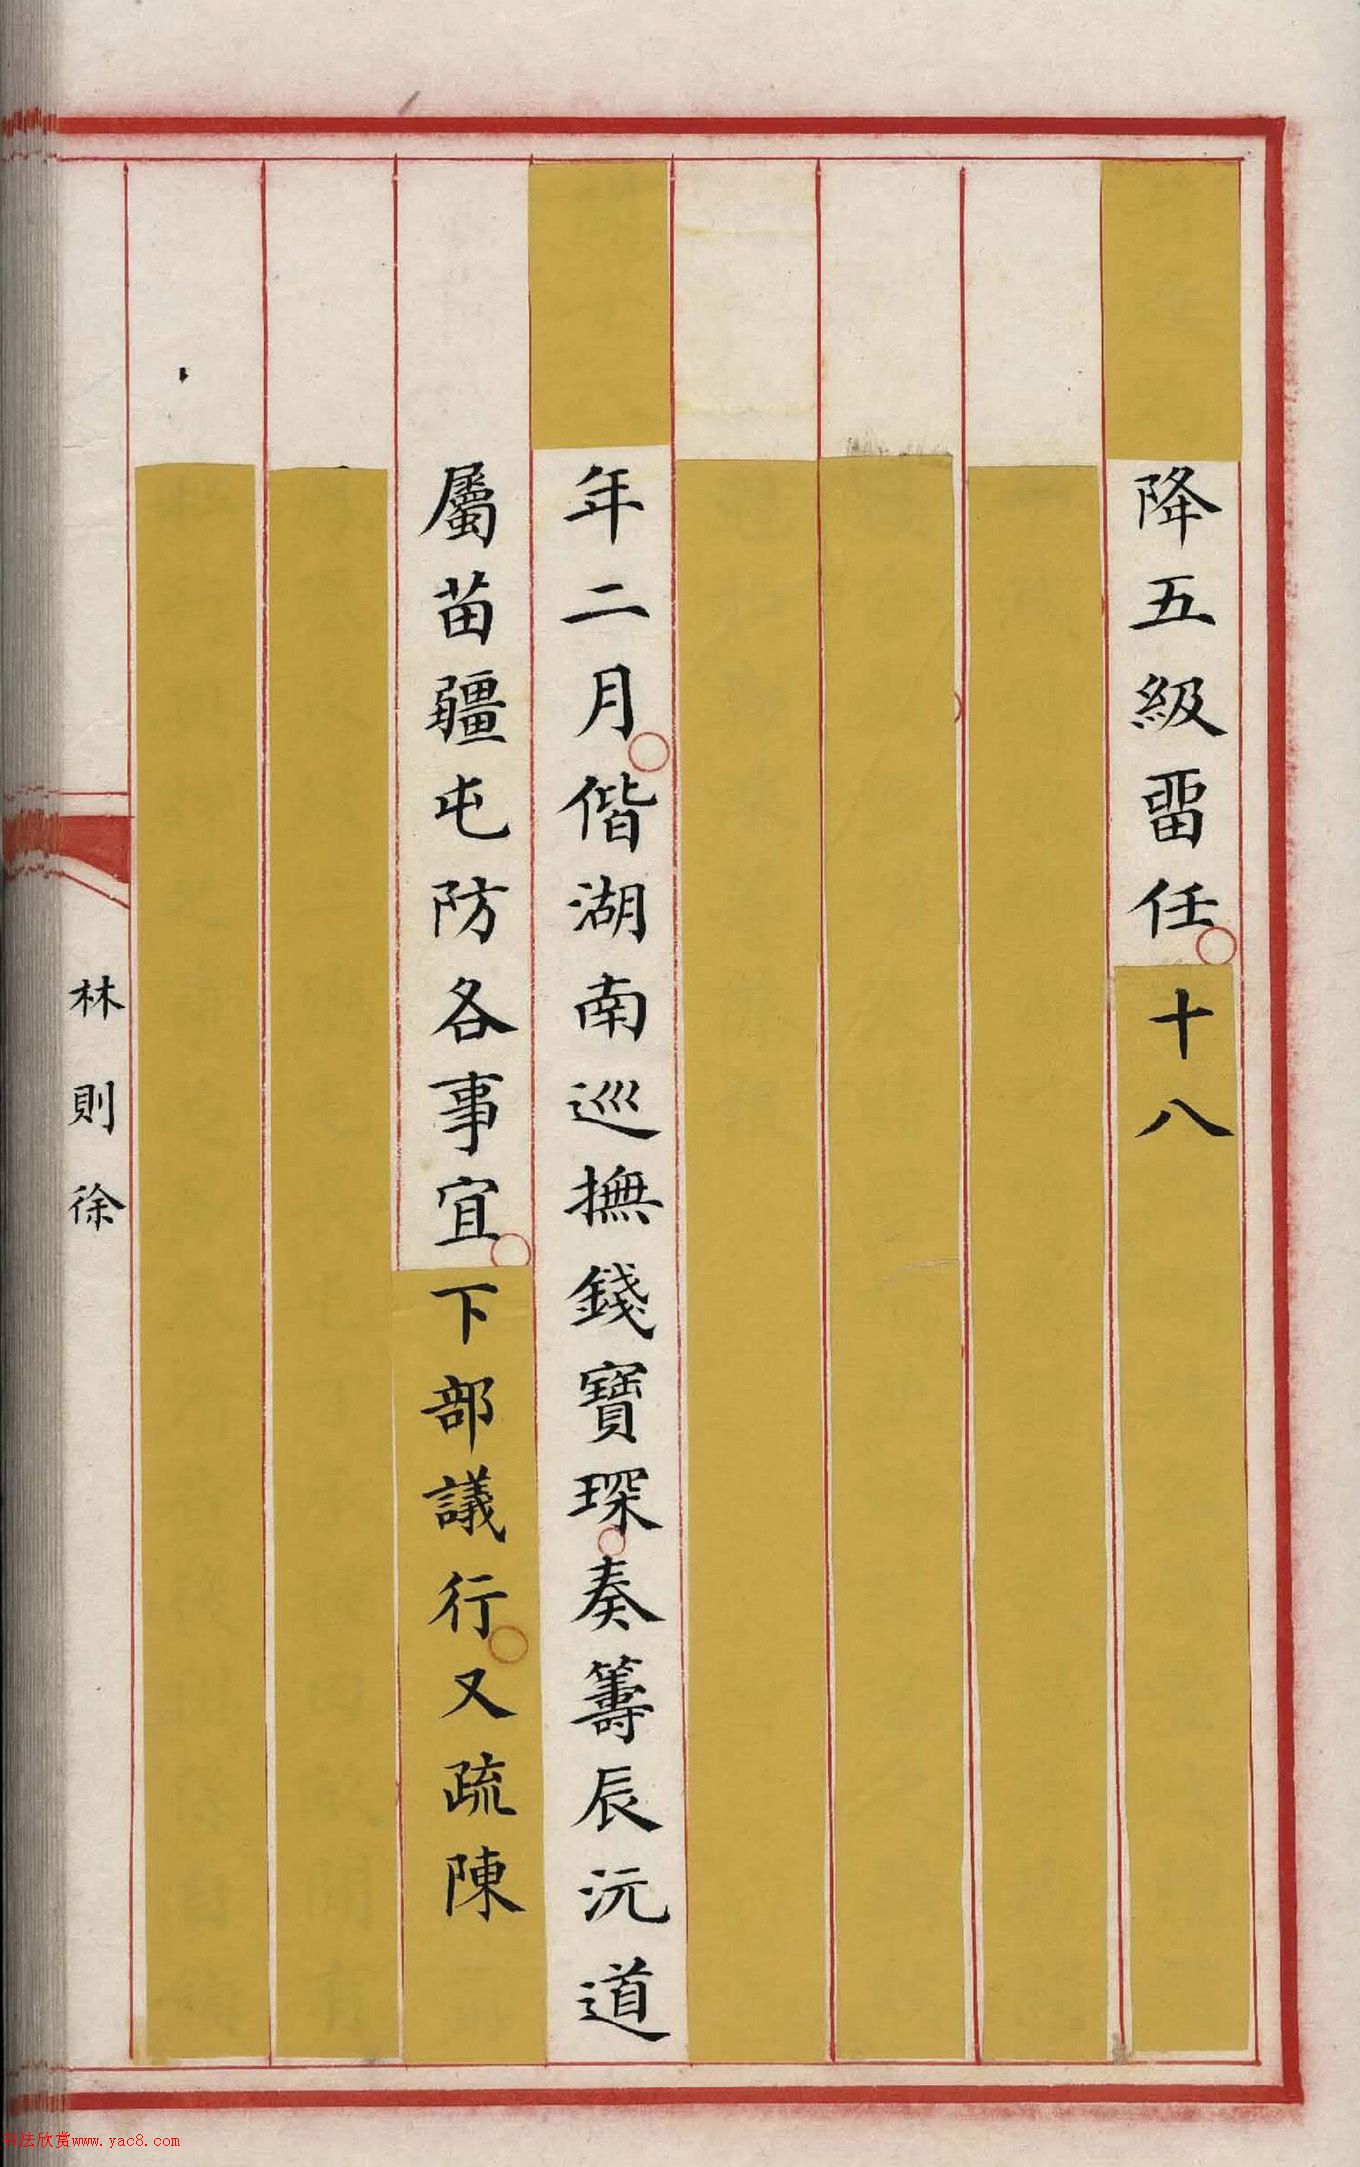 降五級畱任十八
年二月偕湖南巡撫錢寶琛奏籌辰沅道
屬苗疆屯防各事宜下部議行又疏陳
林則徐
书法欣赏www.yac8.com